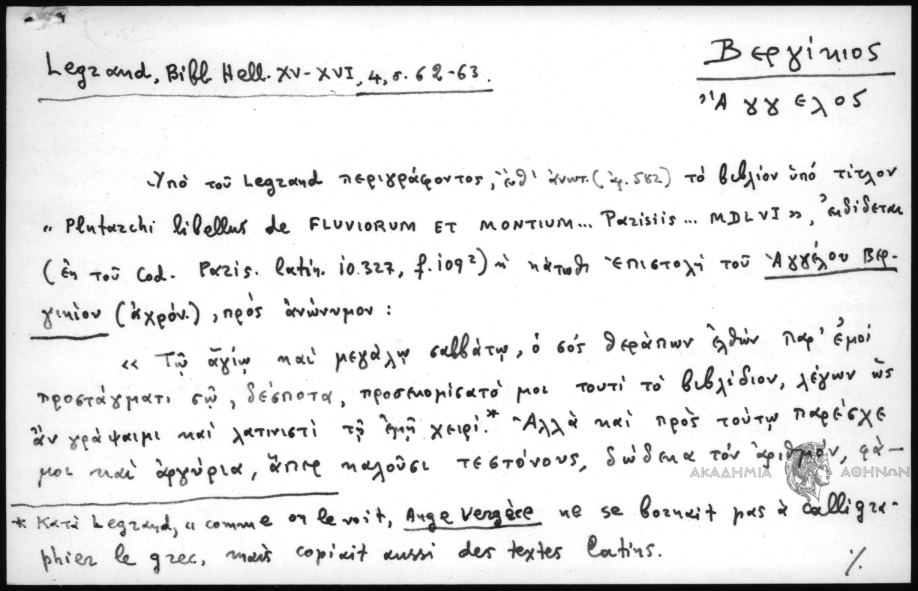 Legrand, Bibl Hell. XV-XVI, 4, σ. 62-63.
Βεργίκιος
Ἄγγελος
Ὑπό τοῦ Legrand περιγράφοντος, ἔνθ' ἀνωτ. (ἀρ. 582) τό βιβλίον ὑπό τίτλον
« Plutarchi libellus de FLUVIORUM ET MONTIUM... Parisiis... MDLVI », ἐκδίδεται
(ἐκ τοῦ Cod. Paris. latin. 10.327, f. 109²) ἡ κάτωθι ἐπιστολή τοῦ Ἀγγέλου Βερ-
γικίου (ἀχρόν.), πρός ἀνώνυμον :
« Τῷ ἁγίῳ καί μεγάλῳ σαββάτῳ, ὁ σός θεράπων ἐλθών παρ' ἐμοί
προστάγματι σῷ, δέσποτα, προσεκομίσατό μοι τουτί τό βιβλίδιον, λέγων ὡς
ἄν γράψαιμι καί λατινιστί τῇ ἐμῇ χειρί.* Ἀλλὰ καί πρὸς τούτῳ παρέσχε
μοι καὶ ἀργύρια, ἅπερ καλοῦσι τεστόνους, δώδεκα τόν ἀριθμόν, φά-
ΑΚΑΔΗΜΙΑ ΑΘΗΝΩΝ
* Κατά Legrand, « comme on le voit, Ange Vergèce ne se bornait pas à calligra-
phier le grec, mais copiait aussi des textes latins.
%